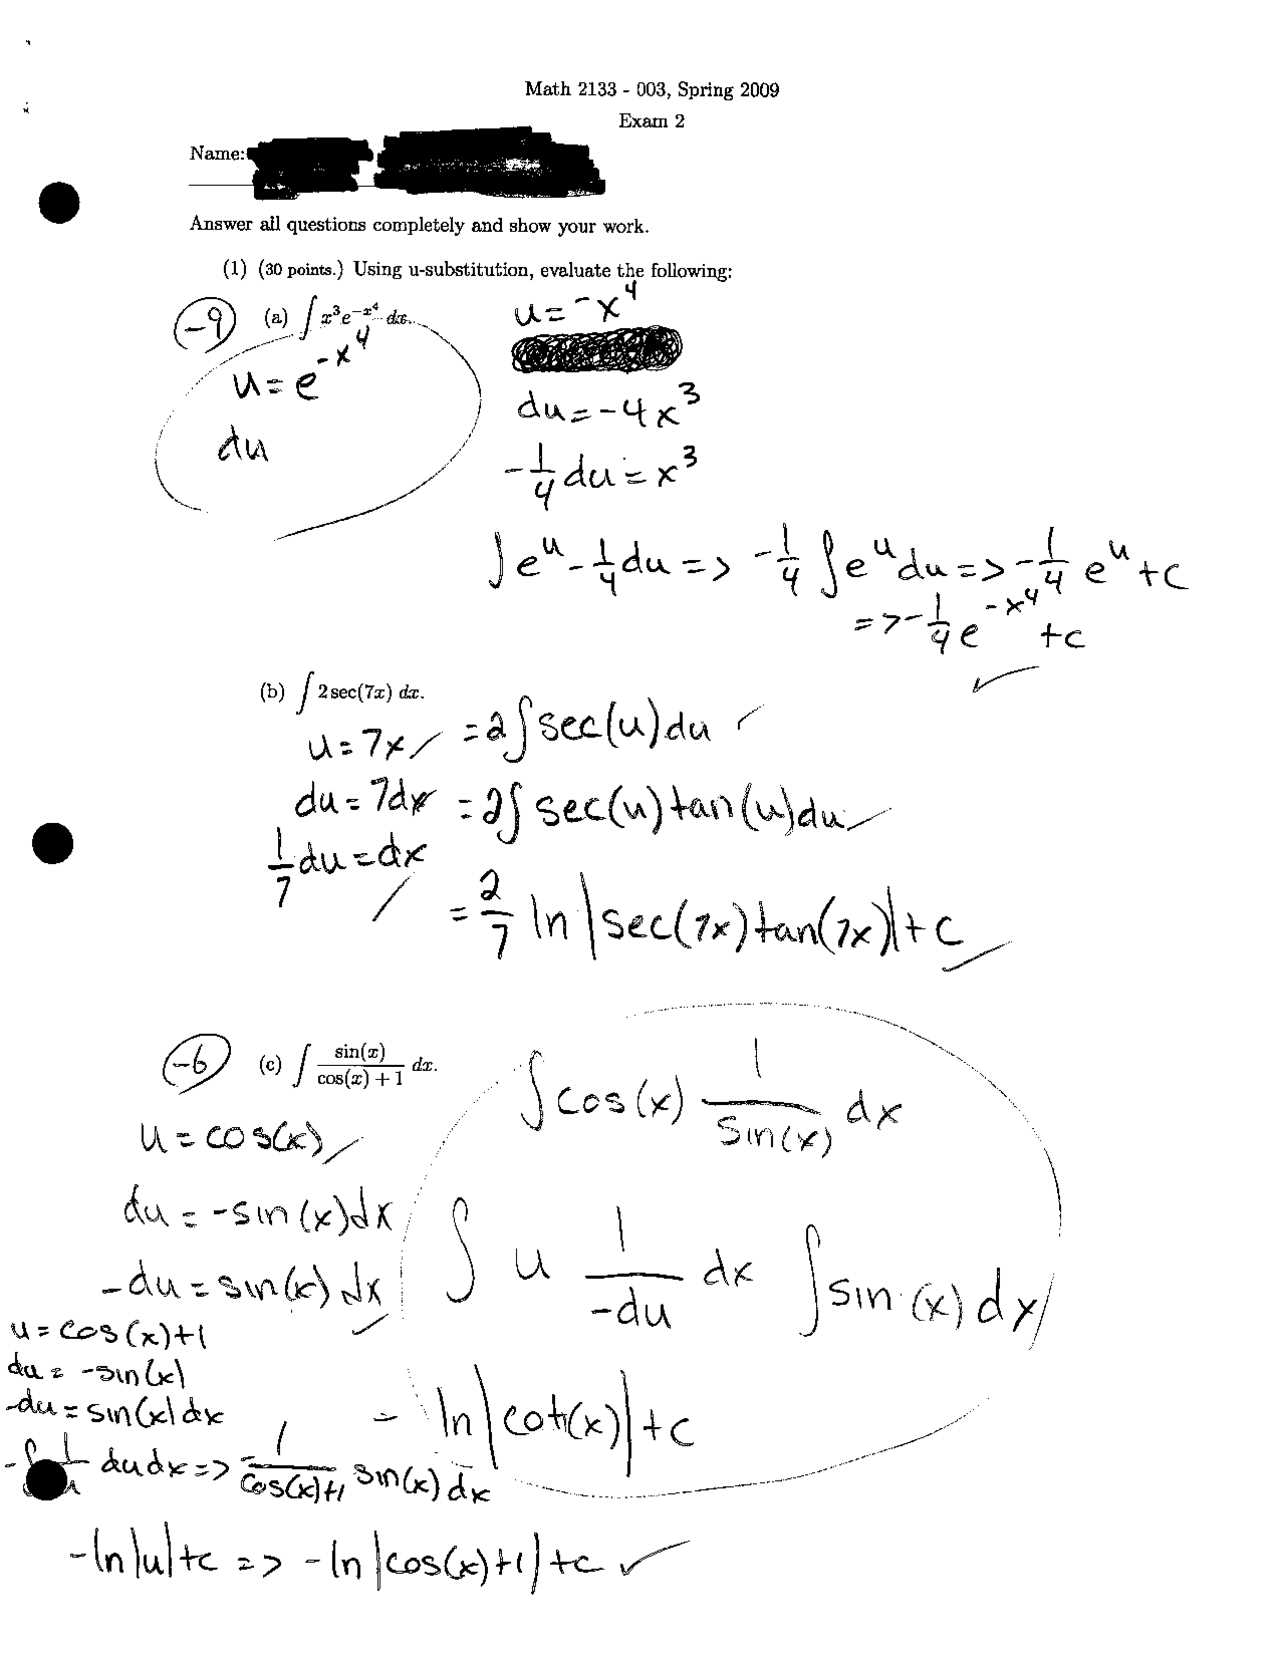 Math 2133 - 003, Spring 2009
Exam 2
Name:
Answer all questions completely and show your work.
(1) (30 points.) Using u-substitution, evaluate the following:
-9
(a) ∫ x³e^{-x⁴} dx.
u = e^{-x⁴}
du
u = -x⁴
du = -4x³
-1/4 du = x³
∫e^u -1/4 du => -1/4 ∫e^u du => -1/4 e^u + c
=> -1/4 e^{-x⁴} + c
(b) ∫ 2 sec(7x) dx.
u = 7x
du = 7dx
1/7 du = dx
= 2∫ sec(u) du
= 2∫ sec(u) tan(u) du
= 2/7 ln |sec(7x) tan(7x)| + c
-6
(c) ∫ sin(x)/(cos(x) + 1) dx.
u = cos(x)
du = -sin(x)dx
-du = sin(x) dx
∫cos(x) 1/sin(x) dx
∫ u 1/-du dx ∫sin(x) dx
= ln |cot(x)| + c
u = cos(x)+1
du = -sin(x)
-du = sin(x)dx
du dx => -1/cos(x)+1 sin(x) dx
-ln|u|+c => -ln |cos(x)+1| + c ✓